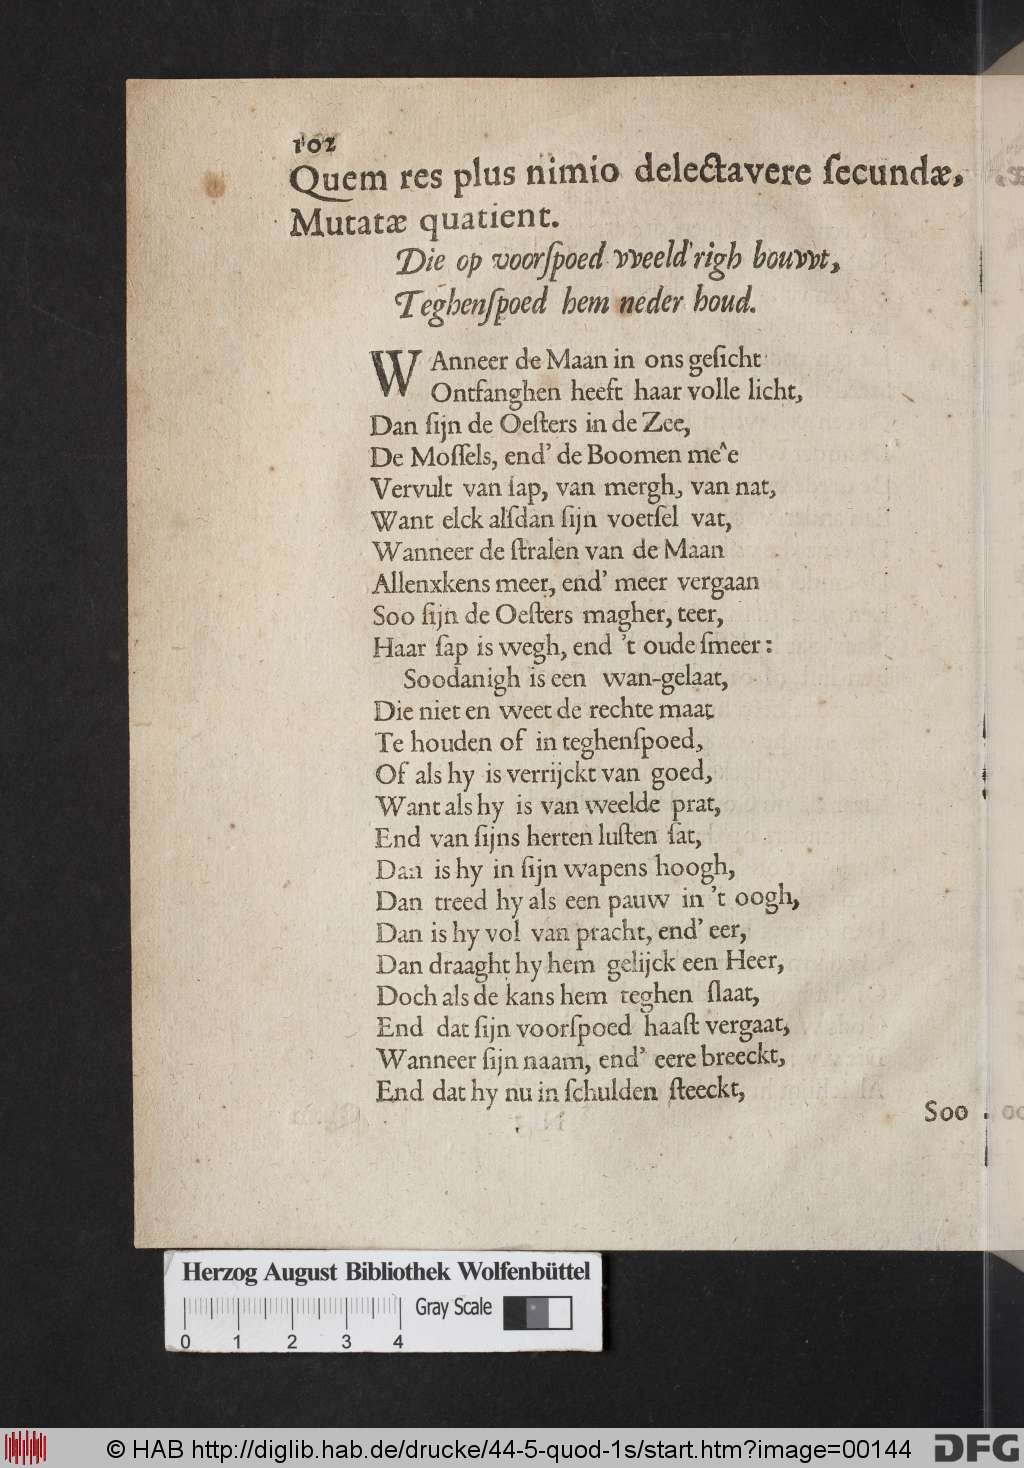 102
Quem res plus nimio delectavere ſecundæ,
Mutatæ quatient.
Die op voorſpoed vveeld'righ bouvvt,
Teghenſpoed hem neder houd.
WAnneer de Maan in ons geſicht
Ontfanghen heeft haar volle licht,
Dan ſijn de Oeſters in de Zee,
De Moſſels, end' de Boomen me^e
Vervult van ſap, van mergh, van nat,
Want elck alſdan ſijn voetſel vat,
Wanneer de ſtralen van de Maan
Allenxkens meer, end' meer vergaan
Soo ſijn de Oeſters magher, teer,
Haar ſap is wegh, end 't oude ſmeer:
Soodanigh is een wan-gelaat,
Die niet en weet de rechte maat
Te houden of in teghenſpoed,
Of als hy is verrijckt van goed,
Want als hy is van weelde prat,
End van ſijns herten luſten ſat,
Dan is hy in ſijn wapens hoogh,
Dan treed hy als een pauw in 't oogh,
Dan is hy vol van pracht, end' eer,
Dan draaght hy hem gelijck een Heer,
Doch als de kans hem teghen ſlaat,
End dat ſijn voorſpoed haaſt vergaat,
Wanneer ſijn naam, end' eere breeckt,
End dat hy nu in ſchulden ſteeckt,
Soo
Herzog August Bibliothek Wolfenbüttel
Gray Scale
0 1 2 3 4
© HAB http://diglib.hab.de/drucke/44-5-quod-1s/start.htm?image=00144
DFG